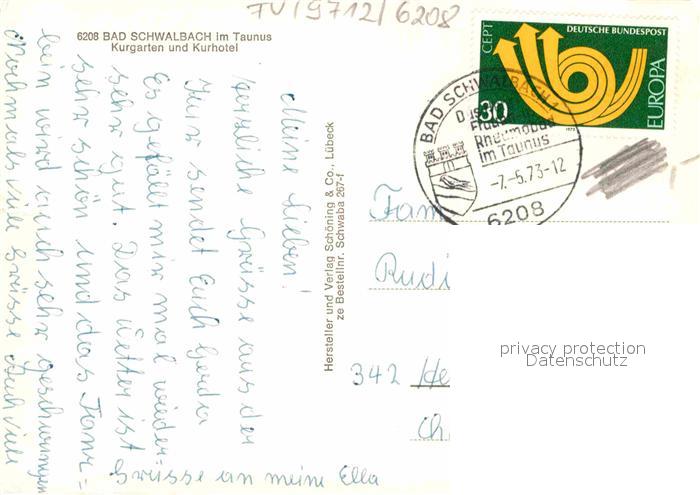 TU/9712/6208
6208 BAD SCHWALBACH im Taunus
Kurgarten und Kurhotel
CEPT
DEUTSCHE BUNDESPOST
30
EUROPA
1973
BAD SCHWALBACH 1
Das
Frau
Rheumabad
im Taunus
-7.-5.73-12
6208
Meine Lieben!
herzliche Grüsse aus der
Kur sendet Euch Gerda
Es gefällt mir mal wieder
sehr gut. Das Wetter ist
sehr schön und das Tanz=
bein wird auch sehr geschwungen
Nochmals viele Grüsse auch viele
Grüsse an meine Ella
Hersteller und Verlag Schöning & Co., Lübeck
ze Bestellnr. Schwaba 267-f
Fam
Rudi
342 He
Ch
privacy protection
Datenschutz